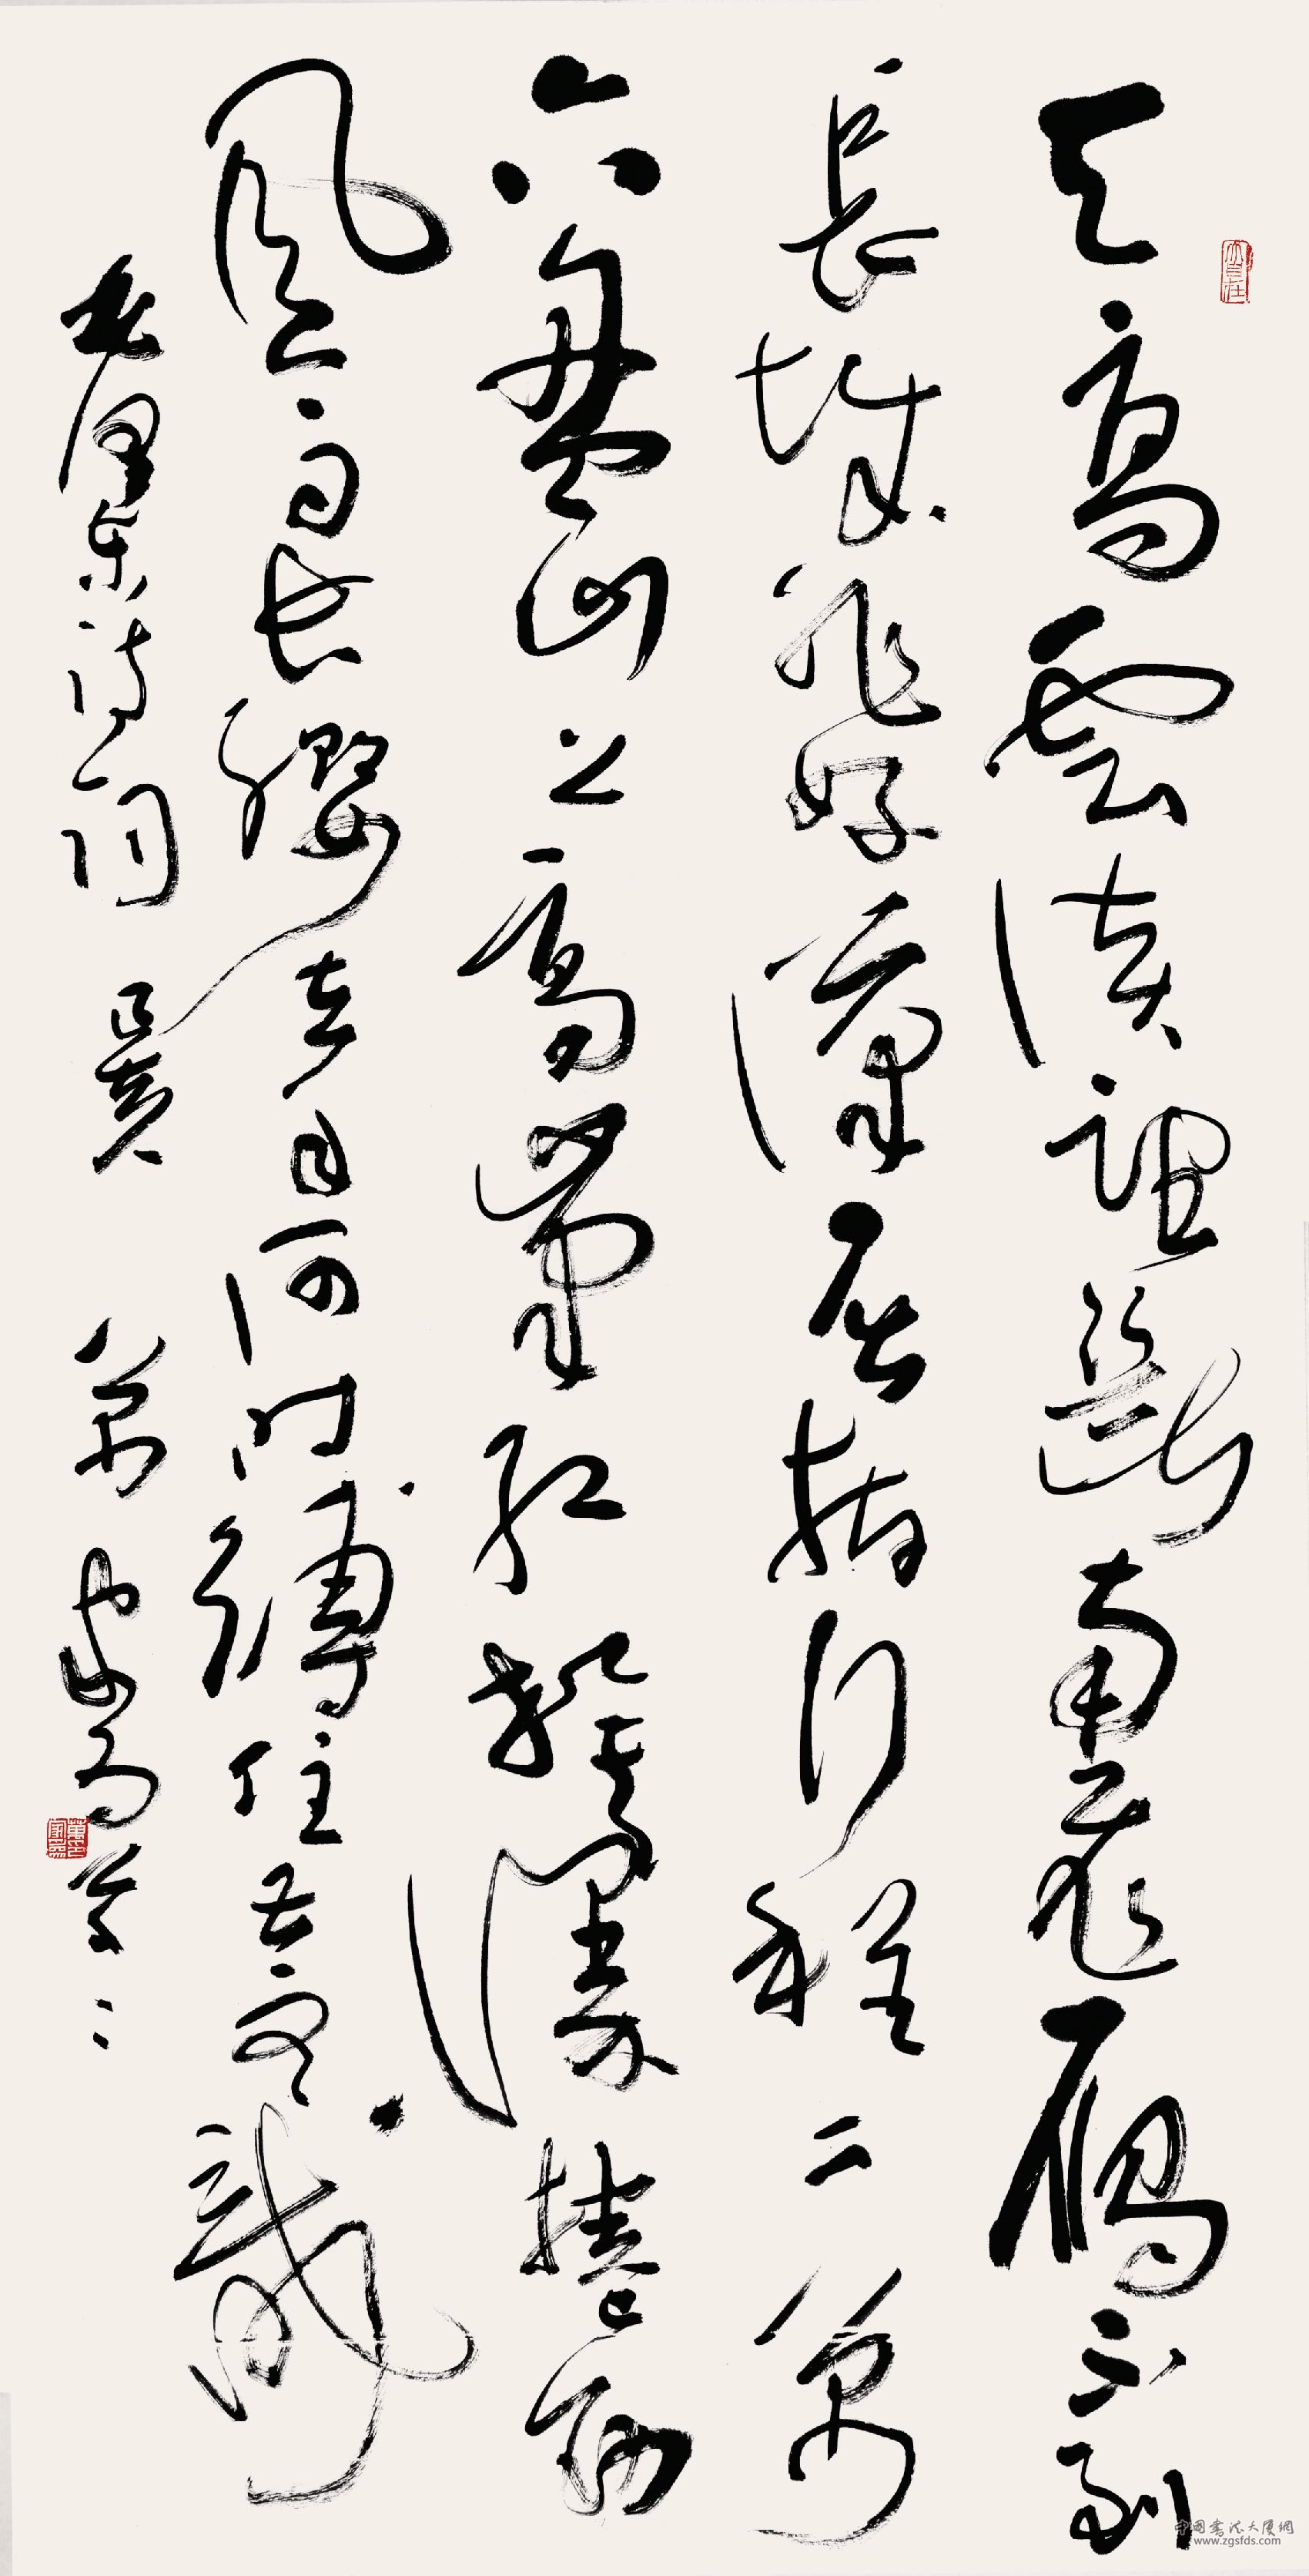 天高雲淡望斷南飛雁不到
長城非好漢屈指行程二萬
六盤山上高峯紅旗漫捲西
風今日長纓在手何時縛住蒼龍
毛澤東詩詞 己亥 萬
中國書法大厦網
www.zgsfds.com